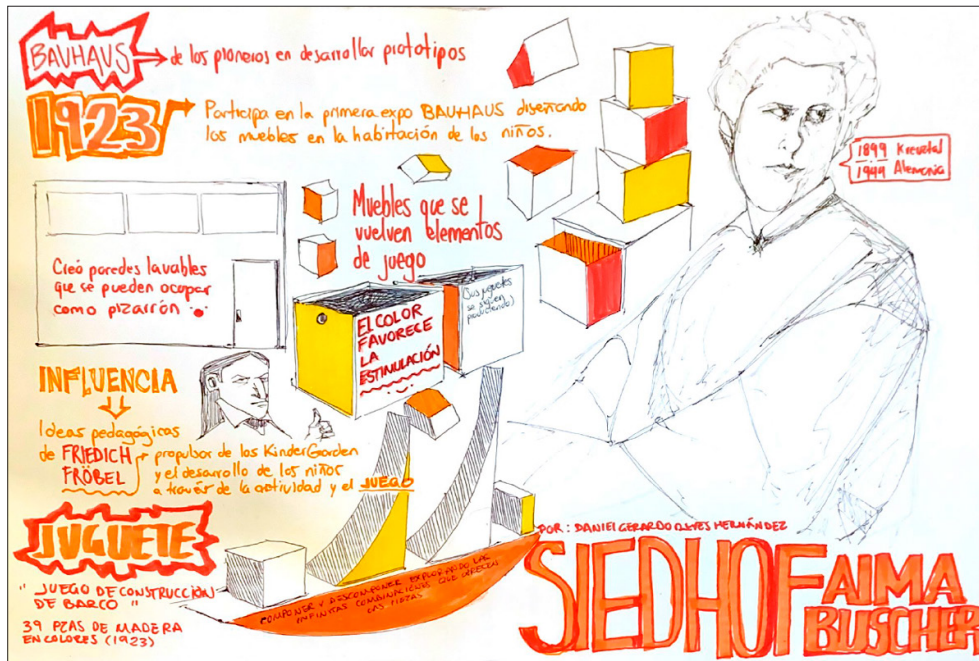 BAUHAUS de los pioneros en desarrollar prototipos
1923 Participa en la primera expo BAUHAUS diseñando
los muebles en la habitación de los niños.
1899 Kreuztal
1944 Alemania
Muebles que se
vuelven elementos
de juego
Creó paredes lavables
que se pueden ocupar
como pizarrón
EL COLOR
FAVORECE
LA
ESTIMULACIÓN
(Sus juguetes
se siguen
produciendo)
INFLUENCIA
Ideas pedagógicas
de FRIEDICH
FRÖBEL
propulsor de los KinderGarden
y el desarrollo de los niños
a través de la actividad y el JUEGO
JUGUETE
" JUEGO DE CONSTRUCCIÓN
DE BARCO "
39 PZAS DE MADERA
EN COLORES (1923)
COMPONER Y DESCOMPONER EXPLORANDO LAS
INFINITAS COMBINACIONES QUE OFRECEN
LAS PIEZAS
POR: DANIEL GERARDO REYES HERNÁNDEZ
SIEDHOF
ALMA
BUSCHER